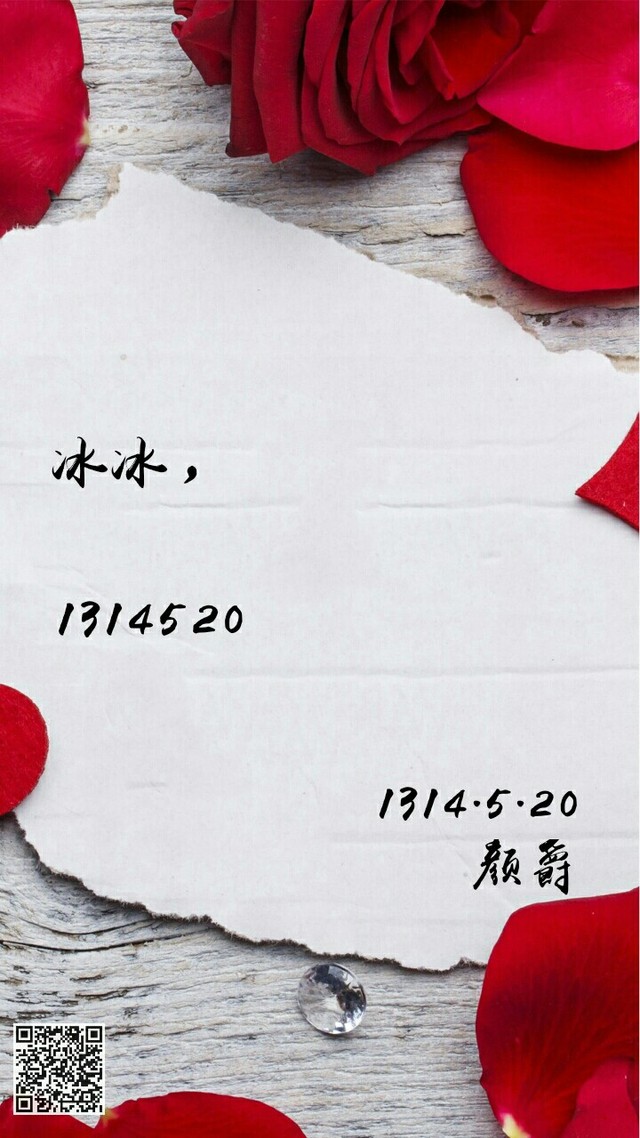 冰冰，
1314520
1314·5·20
颜爵